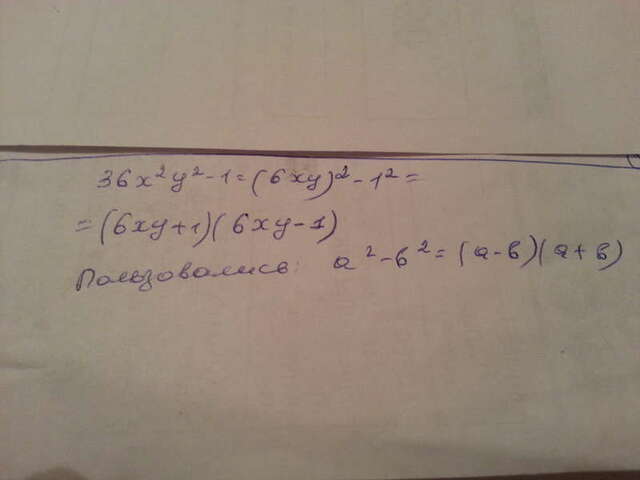 36x²y²-1=(6xy)²-1²=
=(6xy+1)(6xy-1)
Пользовались: a²-b²=(a-b)(a+b)